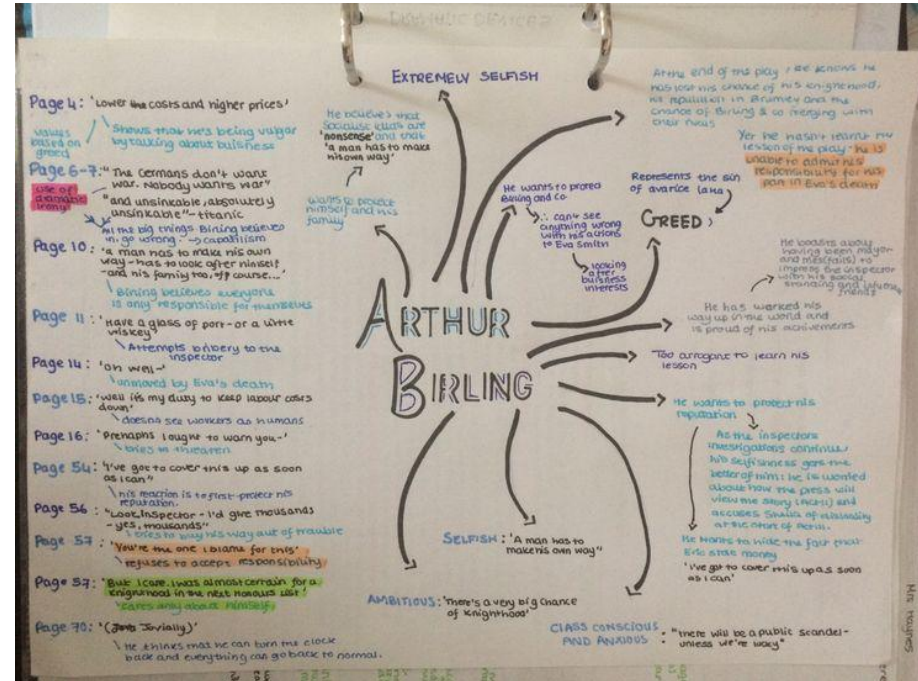 DRAMATIC DEVICES
Page 4: 'Lower the costs and higher prices'
values based on greed
Shows that he's being vulgar
by talking about buisness
Page 6-7: "The Germans don't want
war. Nobody wants war"
use of dramatic irony
"and unsinkable, absolutely
unsinkable" - titanic
All the big things Birling believes
in go wrong. → capatilism
Page 10: 'a man has to make his own
way - has to look after himself
- and his family too, off course...'
Birling believes everyone
is only responsible for themselves
Page 11: 'Have a glass of port - or a little
wiskey'
Attempts bribery to the
inspector
Page 14: 'Oh well-'
unmoved by Eva's death
Page 15: 'Well it's my duty to keep labour costs
down'
doesn't see workers as humans
Page 16: 'Prehaphs I ought to warn you-'
tries to threaten
Page 54: 'I've got to cover this up as soon
as I can'
his reaction is to first-protect his
reputation.
Page 56: "Look, Inspector - I'd give thousands
- yes, thousands"
tries to buy his way out of trouble
Page 57: 'You're the one I blame for this'
refuses to accept responsibility
Page 57: 'But I care. I was almost certain for a
knighthood in the next honours list'
cares only about himself.
Page 70: '(Jovially)'
He thinks that he can turn the clock
back and everything can go back to normal.
ARTHUR
BIRLING
EXTREMELY SELFISH
He believes that
socialist ideas are
'nonsense' and that
'a man has to make
his own way'
wants to protect
himself and his
family
He wants to protect
Birling and Co.
∴ can't see
anything wrong
with his actions
to Eva Smith
looking
after
buisness
interests
At the end of the play, he knows he
has lost his chance of his knighthood,
his reputation in Brumley and the
chance of Birling & co merging with
their rivals
Yet he hasn't learnt the
lesson of the play - he is
unable to admit his
responsibility for his
part in Eva's death
Represents the sin
of avarice (aka
GREED)
He boasts about
having been mayor
and
impress the inspector
with his social
standing and influential
friends
He has worked his
way up in the world and
is proud of his achievements
Too arrogant to learn his
lesson
He wants to protect his
reputation
As the inspectors
investigations continue,
his selfishness gets the
better of him: he is worried
about how the press will
view the story (Act II) and
accuses Sheila of disloyalty
at the start of Act III.
He wants to hide the fact that
Eric stole money
'I've got to cover this up as soon
as I can'
SELFISH: 'A man has to
make his own way"
AMBITIOUS: 'There's a very big chance
of knighthood'
CLASS CONSCIOUS
AND ANXIOUS : "there will be a public scandel-
unless we're lucky"